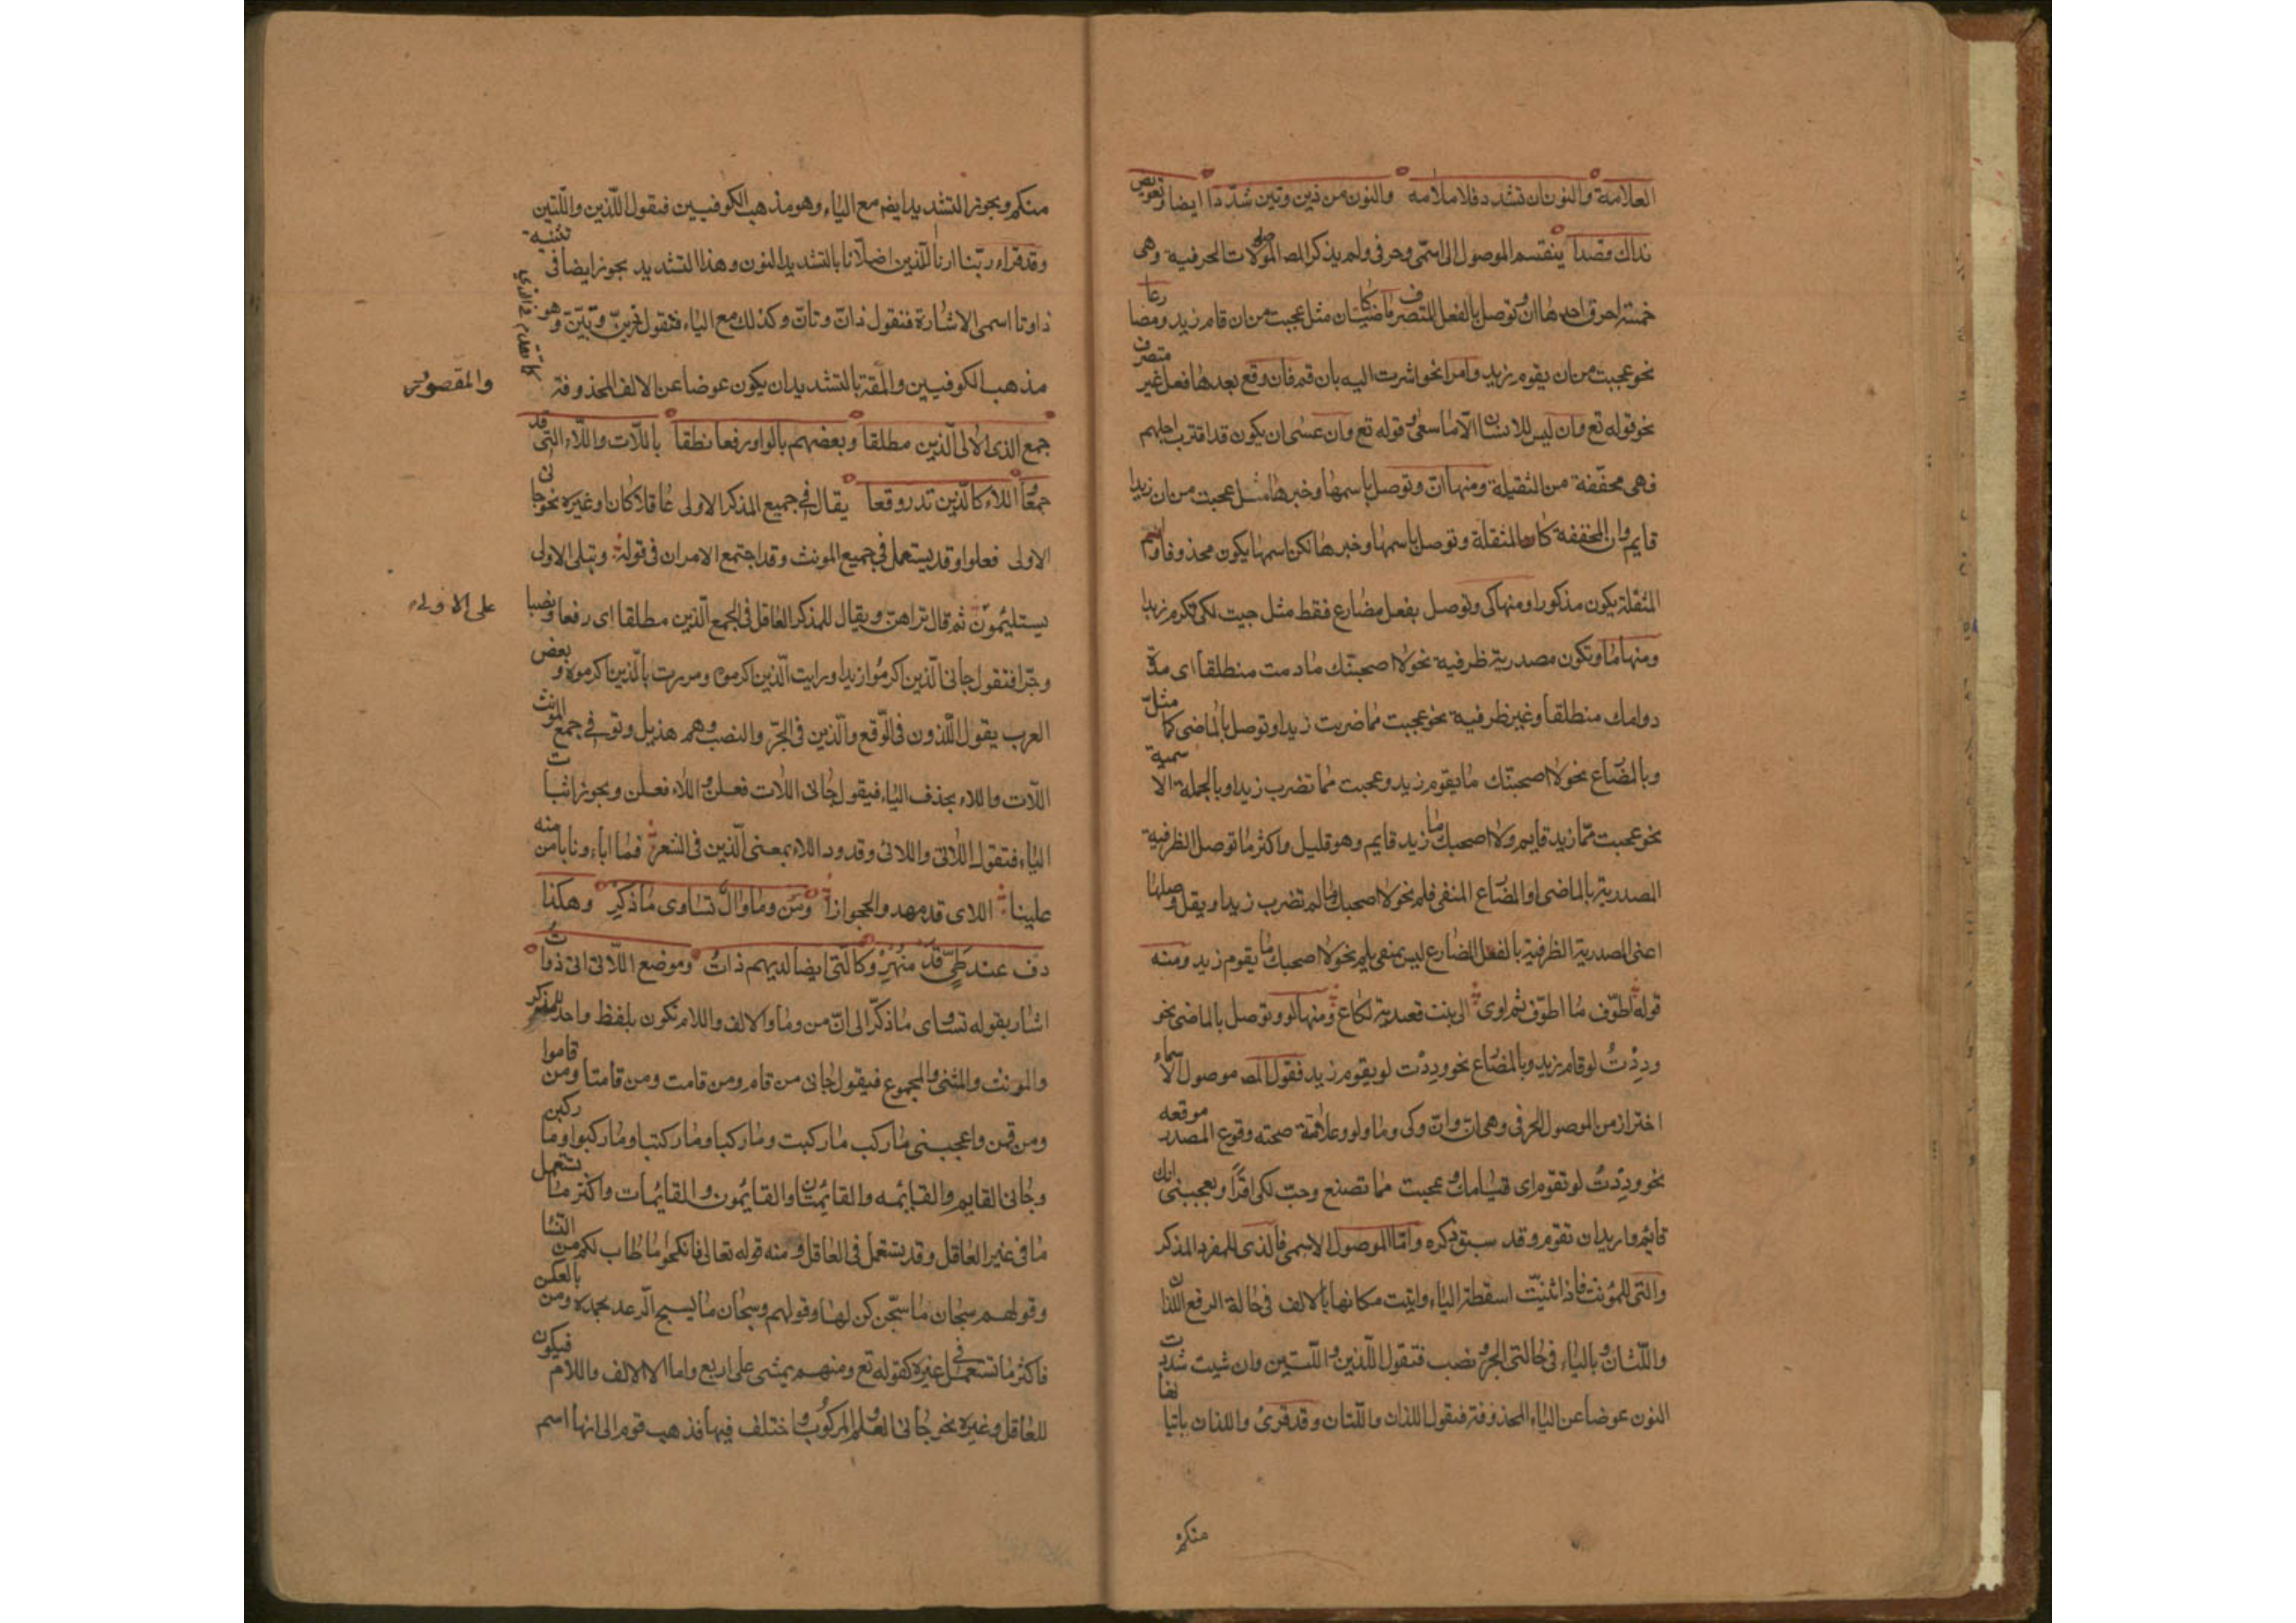 العلامة والنون ان تشدد فلا ملامه والنون من ذين وتين شدّدا ايضا وتعويض
بذاك قصدا ينقسم الموصول الى اسمّى وحرفى ولم يذكر المص الموصولات الحرفية وهى
خمسة احرف احدها ان وتوصل بالفعل المتصرف ماضيا كان مثل عجبت من ان قام زيد ومضارعا
نحو عجبت من ان يقوم زيد وامرا نحو اشرت اليه بان قم فان وقع بعدها فعل غير متصرف
نحو قوله تع وان ليس للانسان الّا ما سعى وقوله تع وان عسى ان يكون قد اقترب اجلهم
فهى مخففة من الثقيلة ومنها انّ وتوصل باسمها وخبرها مثل عجبت من ان زيدا
قايم وان المخففة كالمثقلة وتوصل باسمها وخبرها لكن اسمها يكون محذوفا واسم
المثقلة يكون مذكورا ومنها كى وتوصل بفعل مضارع فقط مثل جيت لكى تكرم زيدا
ومنها ما وتكون مصدرية ظرفية نحو لا اصحبتك ما دمت منطلقا اى مدّة
دوامك منطلقا وغير ظرفية نحو عجبت مما ضربت زيدا وتوصل بالماضى كما مثل
وبالمضارع نحو لا اصحبتك ما يقوم زيد وعجبت مما تضرب زيدا وبالجملة الاسمية
نحو عجبت ممّا زيد قايم ولا اصحبك ما زيد قايم وهو قليل واكثر ما توصل الظرفية
المصدرية بالماضى او المضارع المنفى فلم نحو لا اصحبك ما لم تضرب زيدا ويقل وصلها
اعنى المصدرية الظرفية بالفعل المضارع ليس بمنفى بلم نحو لا اصحبك ما يقوم زيد ومنه
قوله اطوّف ما اطوّف ثم اوى الى بنت قعيدته لكاع ومنها لو وتوصل بالماضى نحو
وددْتُ لو قام زيد وبالمضارع نحو وددْت لو يقوم زيد فقول المص موصول الاسماء
احتراز من الموصول الحرفى وهى ان وانّ وكى وما ولو وعلامة صحته وقوع المصدر موقعه
نحو وددْتُ لو تقوم اى قيامك وعجبت مما تصنع وجئت لكى اقرأ ويعجبنى انك
قائم واريد ان تقوم وقد سبق ذكره وامّا الموصول الاسمى فالذى للمفرد المذكر
والتى للمؤنث فاذا ثنيّت اسقطت الياء واتيت مكانها بالالف فى حالة الرفع اللذان
واللتان وبالياء فى حالتى الجر ونصب فتقول اللّذين واللّتين وان شيت شددت
النون عوضا عن الياء المحذوفة فتقول اللذان واللّتان وقد قرئ واللذان ياتيانها
منكم
منكم ويجوز التشديد ايضم مع الياء وهو مذهب الكوفيين فيقول اللّذين واللّتين
وقد قراء ربّنا ارنا الّذين اضلّانا بالتشديد النون وهذا التشديد يجوز ايضا فى تثنية
ذا وتا اسمى الاشارة فتقول ذانّ وتانّ وكذلك مع الياء فتقول ذينّ وتينّ وهو
مذهب الكوفيين والمقص بالتشديد ان يكون عوضا عن الالف المحذوفة
والمقصود
جمع الذى الالى الّذين مطلقا وبعضهم بالواو رفعا نطقا باللّات واللّاء التى قد
جمعا اللاء كالّذين نذر وقعا يقال فى جميع المذكر الاولى عاقلا كان او غيره نحو جانى
الاولى فعلوا وقد يستعمل فى جميع المونث وقد اجتمع الامران فى قوله وتبلى الاولى
يستليُمون ثم قال تراهنّ ويقال للمذكر العاقل فى الجمع الّذين مطلقا اى رفعا ونصبا
على الاولى
وجرّا فتقول جانى الّذين اكرمُوا زيدا ورايت الّذين اكرموه ومررت بالّذين اكرموه وبعض
العرب يقول اللّذون فى الرّفع والّذين فى الجرّ والنصب وهم هذيل وتقول فى جمع المونث
اللّات واللاء بحذف الياء فيقول جانى اللات فعلن واللاء فعلن ويجوز اثبات
الياء فتقول اللاتى واللائى وقد ورد اللاء بمعنى الّذين فى الشعر فما اباءونا بامن منه
علينا اللاى قد مهدوا الحجوازا ومن وما وال تساوى ما ذكر وهكذا
ذو عند طىّ قد شهر وكالّتى ايضا لديهم ذات وموضع اللّاتى اتى ذوات
اشار بقوله تساوى ما ذكّر الى انّ من وما والالف واللام تكون بلفظ واحد للمذكر
والمونث والمثنى والمجموع فيقول جانى من قام ومن قامت ومن قامتا ومن قاموا
ومن قمن واعجبنى ما ركب ما ركبت وما ركبا وما ركبتا وما ركبوا وما ركبن
وجانى القايم والقايمه والقايمان والقايمون والقايمات واكثر ما يستعمل
ما فى غير العاقل وقد يستعمل فى العاقل ومنه قوله تعالى فانكحوا ما طاب لكم من النسا
وقولهم سبحان ما سخّركن لها وقولهم وسبحان ما يسبح الّرعد بحمده ومن بالعكس
فاكثر ما تستعمل فى غيره كقوله تع ومنهم من يمشى على اربع واما الالف واللام فيكون
للعاقل وغيره نحو جانى العالم والمركوب واختلف فيها فذهب قوم الى انها اسم